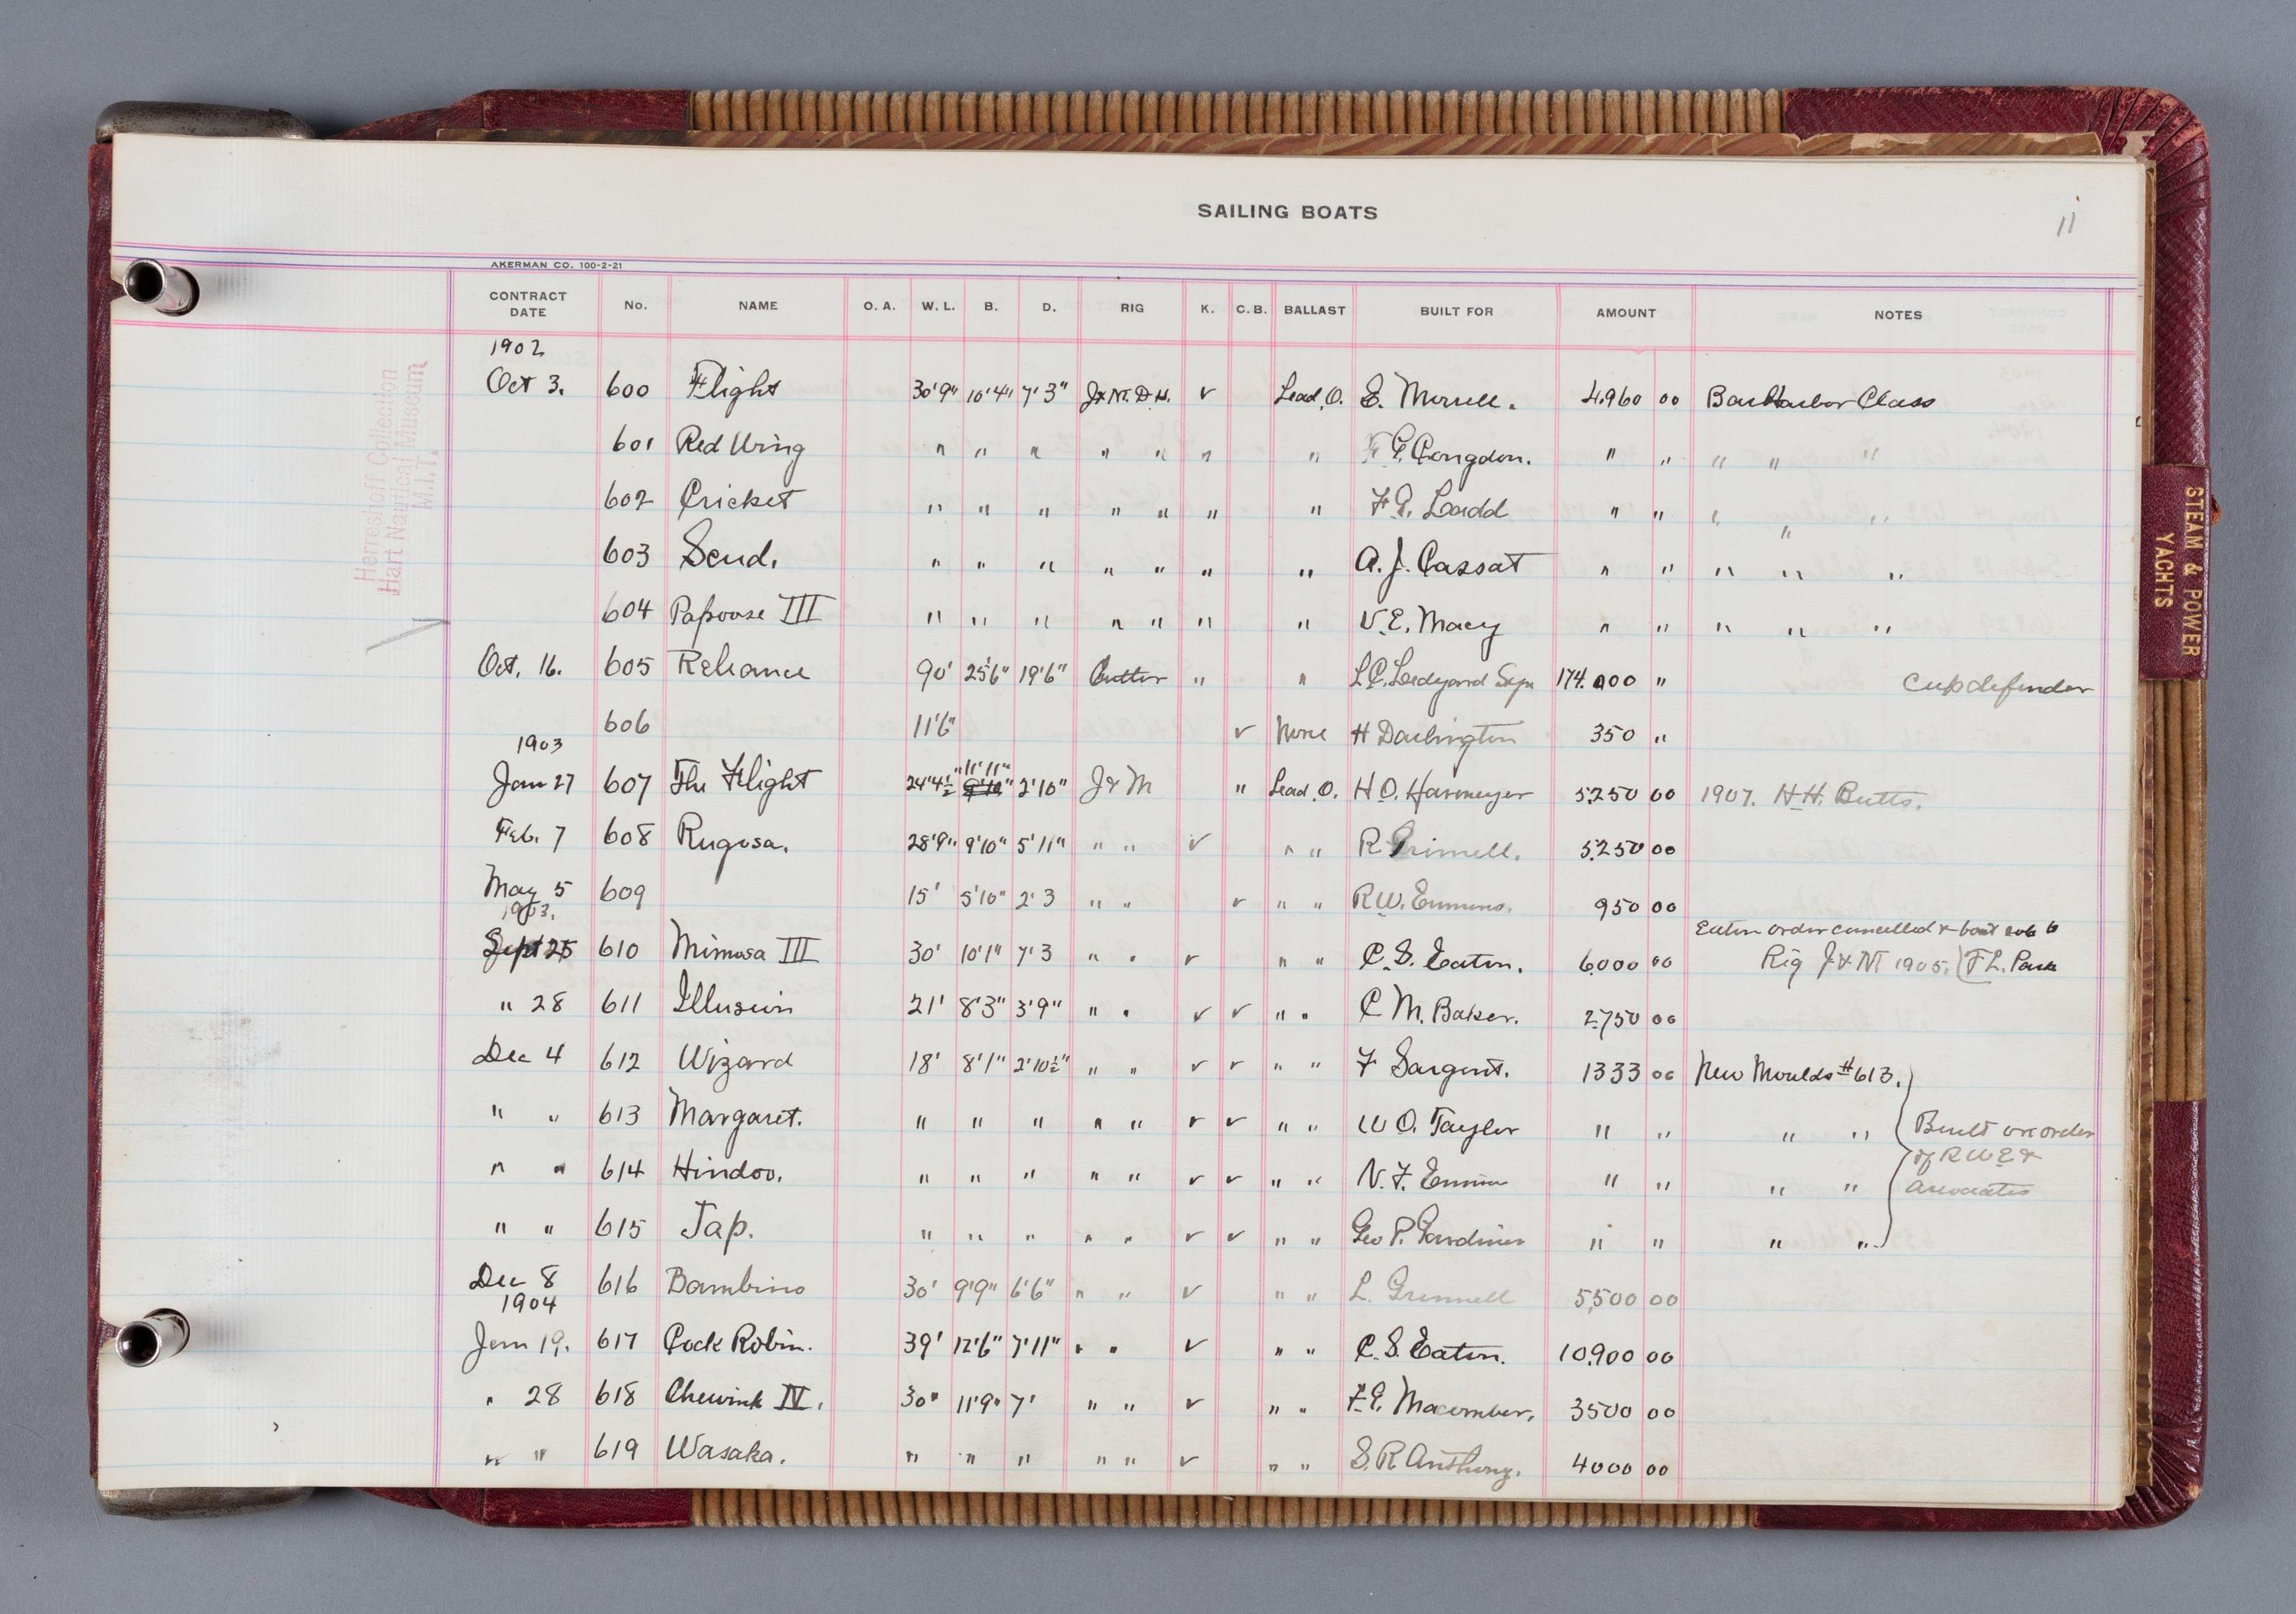 SAILING BOATS
11
AKERMAN CO. 100-2-21
CONTRACT DATE No. NAME O. A. W. L. B. D. RIG K. C. B. BALLAST BUILT FOR AMOUNT NOTES
1902
Oct 3. 600 Flight 30'9" 10'4" 7'3" J & M. D. H. ✓ Lead, O. E. Morrell. 4,960 00 Bar Harbor Class
601 Red Wing " " " " " " " Congdon. " " " " "
602 Cricket " " " " " " " F. G. Ladd " " " " "
603 Scud. " " " " " " " A. J. Cassat " " " " "
604 Papoose III " " " " " " " V. E. Macy " " " " "
Oct. 16. 605 Reliance 90' 25'6" 19'6" Cutter " " L. C. Ledyard 174,000 " Cup defender
606 11'6" ✓ None H Darlington 350 "
1903
Jan 27 607 The Flight 24'4½" 11'11" 2'10" J & M " Lead. O. H. O. Havmeyer 5,250 00 1907. H. H. Butts.
Feb. 7 608 Rugosa. 28'9" 9'10" 5'11" " " ✓ " " R. Grinnell. 5,250 00
May 5 609 15' 5'10" 2'3 " " ✓ " " R. W. Emmons. 950 00
1903. Eaton order cancelled & boat sold to
Sept 25 610 Mimosa III 30' 10'1" 7'3 " " ✓ " " C. S. Eaton. 6,000 00 Rig J & M 1905. (F L. Park
" 28 611 Illusion 21' 8'3" 3'9" " " ✓ ✓ " " C. M. Baker. 2,750 00
Dec 4 612 Wizard 18' 8'1" 2'10½" " " ✓ ✓ " " F Sargent. 1333 00 New Moulds #613.
" " 613 Margaret. " " " " " ✓ ✓ " " W O. Taylor " " " " Built on order
" " 614 Hindoo. " " " " " ✓ ✓ " " N. F. Emmons " " " " of R W E & associates
" " 615 Jap. " " " " " ✓ ✓ " " Geo P. Gardiner " " " "
Dec 8 616 Bambino 30' 9'9" 6'6" " " ✓ " " L. Grinnell 5,500 00
1904
Jan 19. 617 Cock Robin. 39' 12'6" 7'11" " " ✓ " " C. S. Eaton. 10,900 00
" 28 618 Chewink IV. 30' 11'9" 7' " " ✓ " " F. G. Macomber. 3500 00
" " 619 Wasaka. " " " " " ✓ " " S. R Anthony. 4000 00
Herreshoff Collection
Hart Nautical Museum
M.I.T.
STEAM & POWER
YACHTS